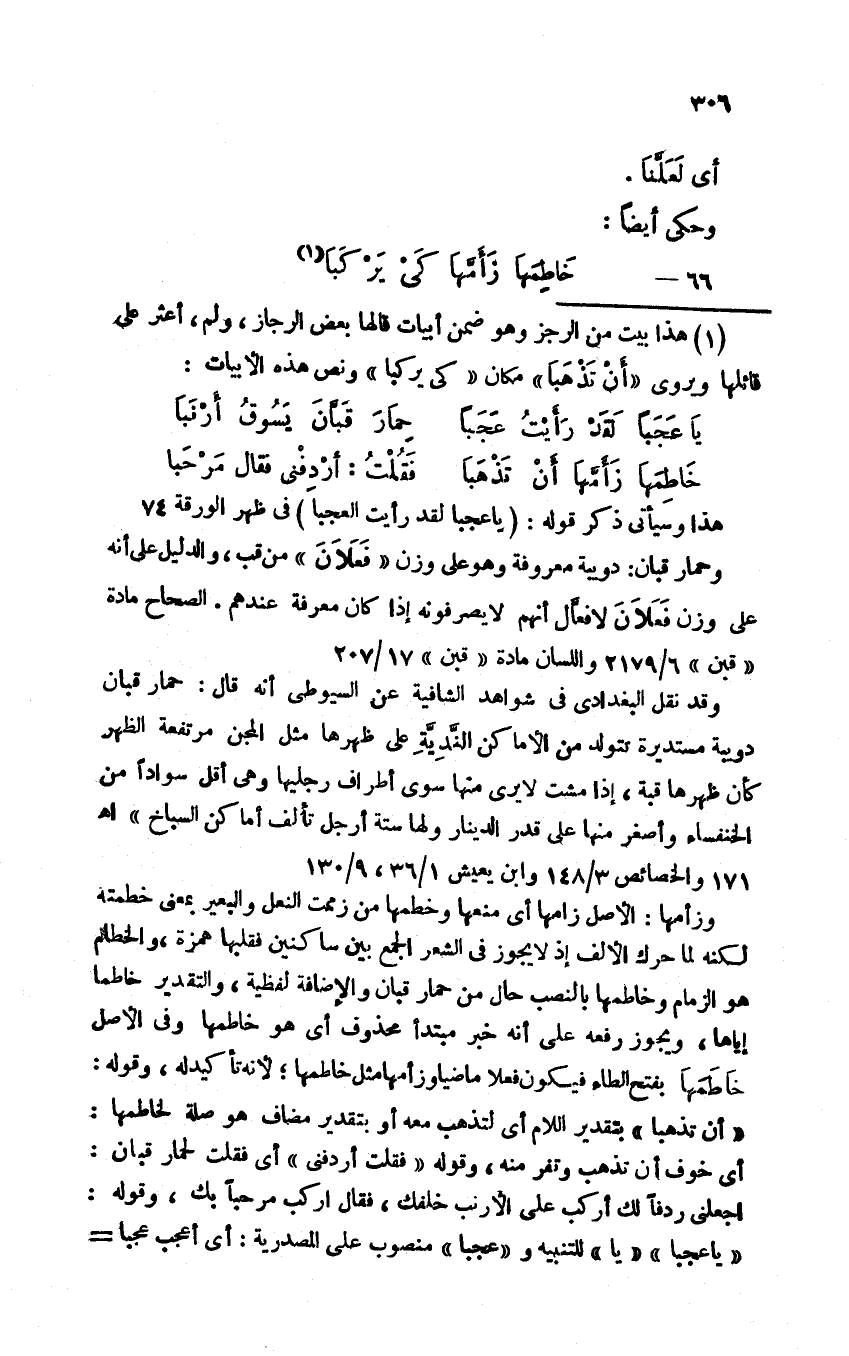 ٣٠٦
أى لَعَلَّنَا .
وحكى أيضاً :
٦٦ — خَاطِمَهَا زَأَمَّهَا كَىْ يَرْكَبَا(١)
(١) هذا بيت من الرجز وهو ضمن أبيات قالها بعض الرجاز ، ولم ، أعثر على
قائلها ويروى «أَنْ تَذْهَبَا» مكان « كى يركبا » ونص هذه الأبيات :
يَا عَجَبَاً لَقَدْ رَأَيْتُ عَجَبَاً حِمَارَ قَبَّانَ يَسُوقُ أَرْنَبَا
خَاطِمَهَا زَأَمَّهَا أَنْ تَذْهَبَا فَقُلْتُ : أرْدِفْنى فقال مَرْحَبا
هذا وسيأتى ذكر قوله : ( ياعجبا لقد رأيت العجبا ) فى ظهر الورقة ٧٤
وحمار قبان: دويبة معروفة وهو على وزن « فَعَلَانَ » من قب ، والدليل على أنه
على وزن فَعَلَانَ لافعَّال أنهم لايصرفونه إذا كان معرفة عندهم . الصحاح مادة
« قبن » ٢١٧٩/٦ واللسان مادة « قبن » ٢٠٧/١٧
وقد نقل البغدادى فى شواهد الشافية عن السيوطى أنه قال : حمار قبان
دويبة مستديرة تتولد من الأماكن النَّدِيَّةِ على ظهرها مثل المجن مرتفعة الظهر
كأن ظهرها قبة ، إذا مشت لايرى منها سوى أطراف رجليها وهى أقل سواداً من
الخنفساء وأصغر منها على قدر الدينار ولها ستة أرجل تألف أماكن السباخ » اه
١٧١ والخصائص ١٤٨/٣ وابن يعيش ٣٦/١ ، ١٣٠/٩
وزأمها : الأصل زامها أى منعها وخطمها من زممت النعل والبعير بمعنى خطمته
لكنه لما حرك الألف إذ لايجوز فى الشعر الجمع بين ساكنين فقلبها همزة ، والخطام
هو الزمام وخاطمها بالنصب حال من حمار قبان والإضافة لفظية ، والتقدير خاطما
إياها ، ويجوز رفعه على أنه خبر مبتدأ محذوف أى هو خاطمها وفى الأصل
خَاطَمَهَا بفتح الطاء فيكون فعلا ماضيا وزأمها مثل خاطمها ؛ لأنه تأكيد له ، وقوله :
« أن تذهبا » بتقدير اللام أى لتذهب معه أو بتقدير مضاف هو صلة لخاطمها :
أى خوف أن تذهب وتفر منه ، وقوله « فقلت أردفنى » أى فقلت لحمار قبان :
اجعلنى ردفاً لك أركب على الأرنب خلفك ، فقال اركب مرحباً بك ، وقوله :
« ياعجبا » « يا » للتنبيه و «عجبا» منصوب على المصدرية : أى أعجب عجبا =